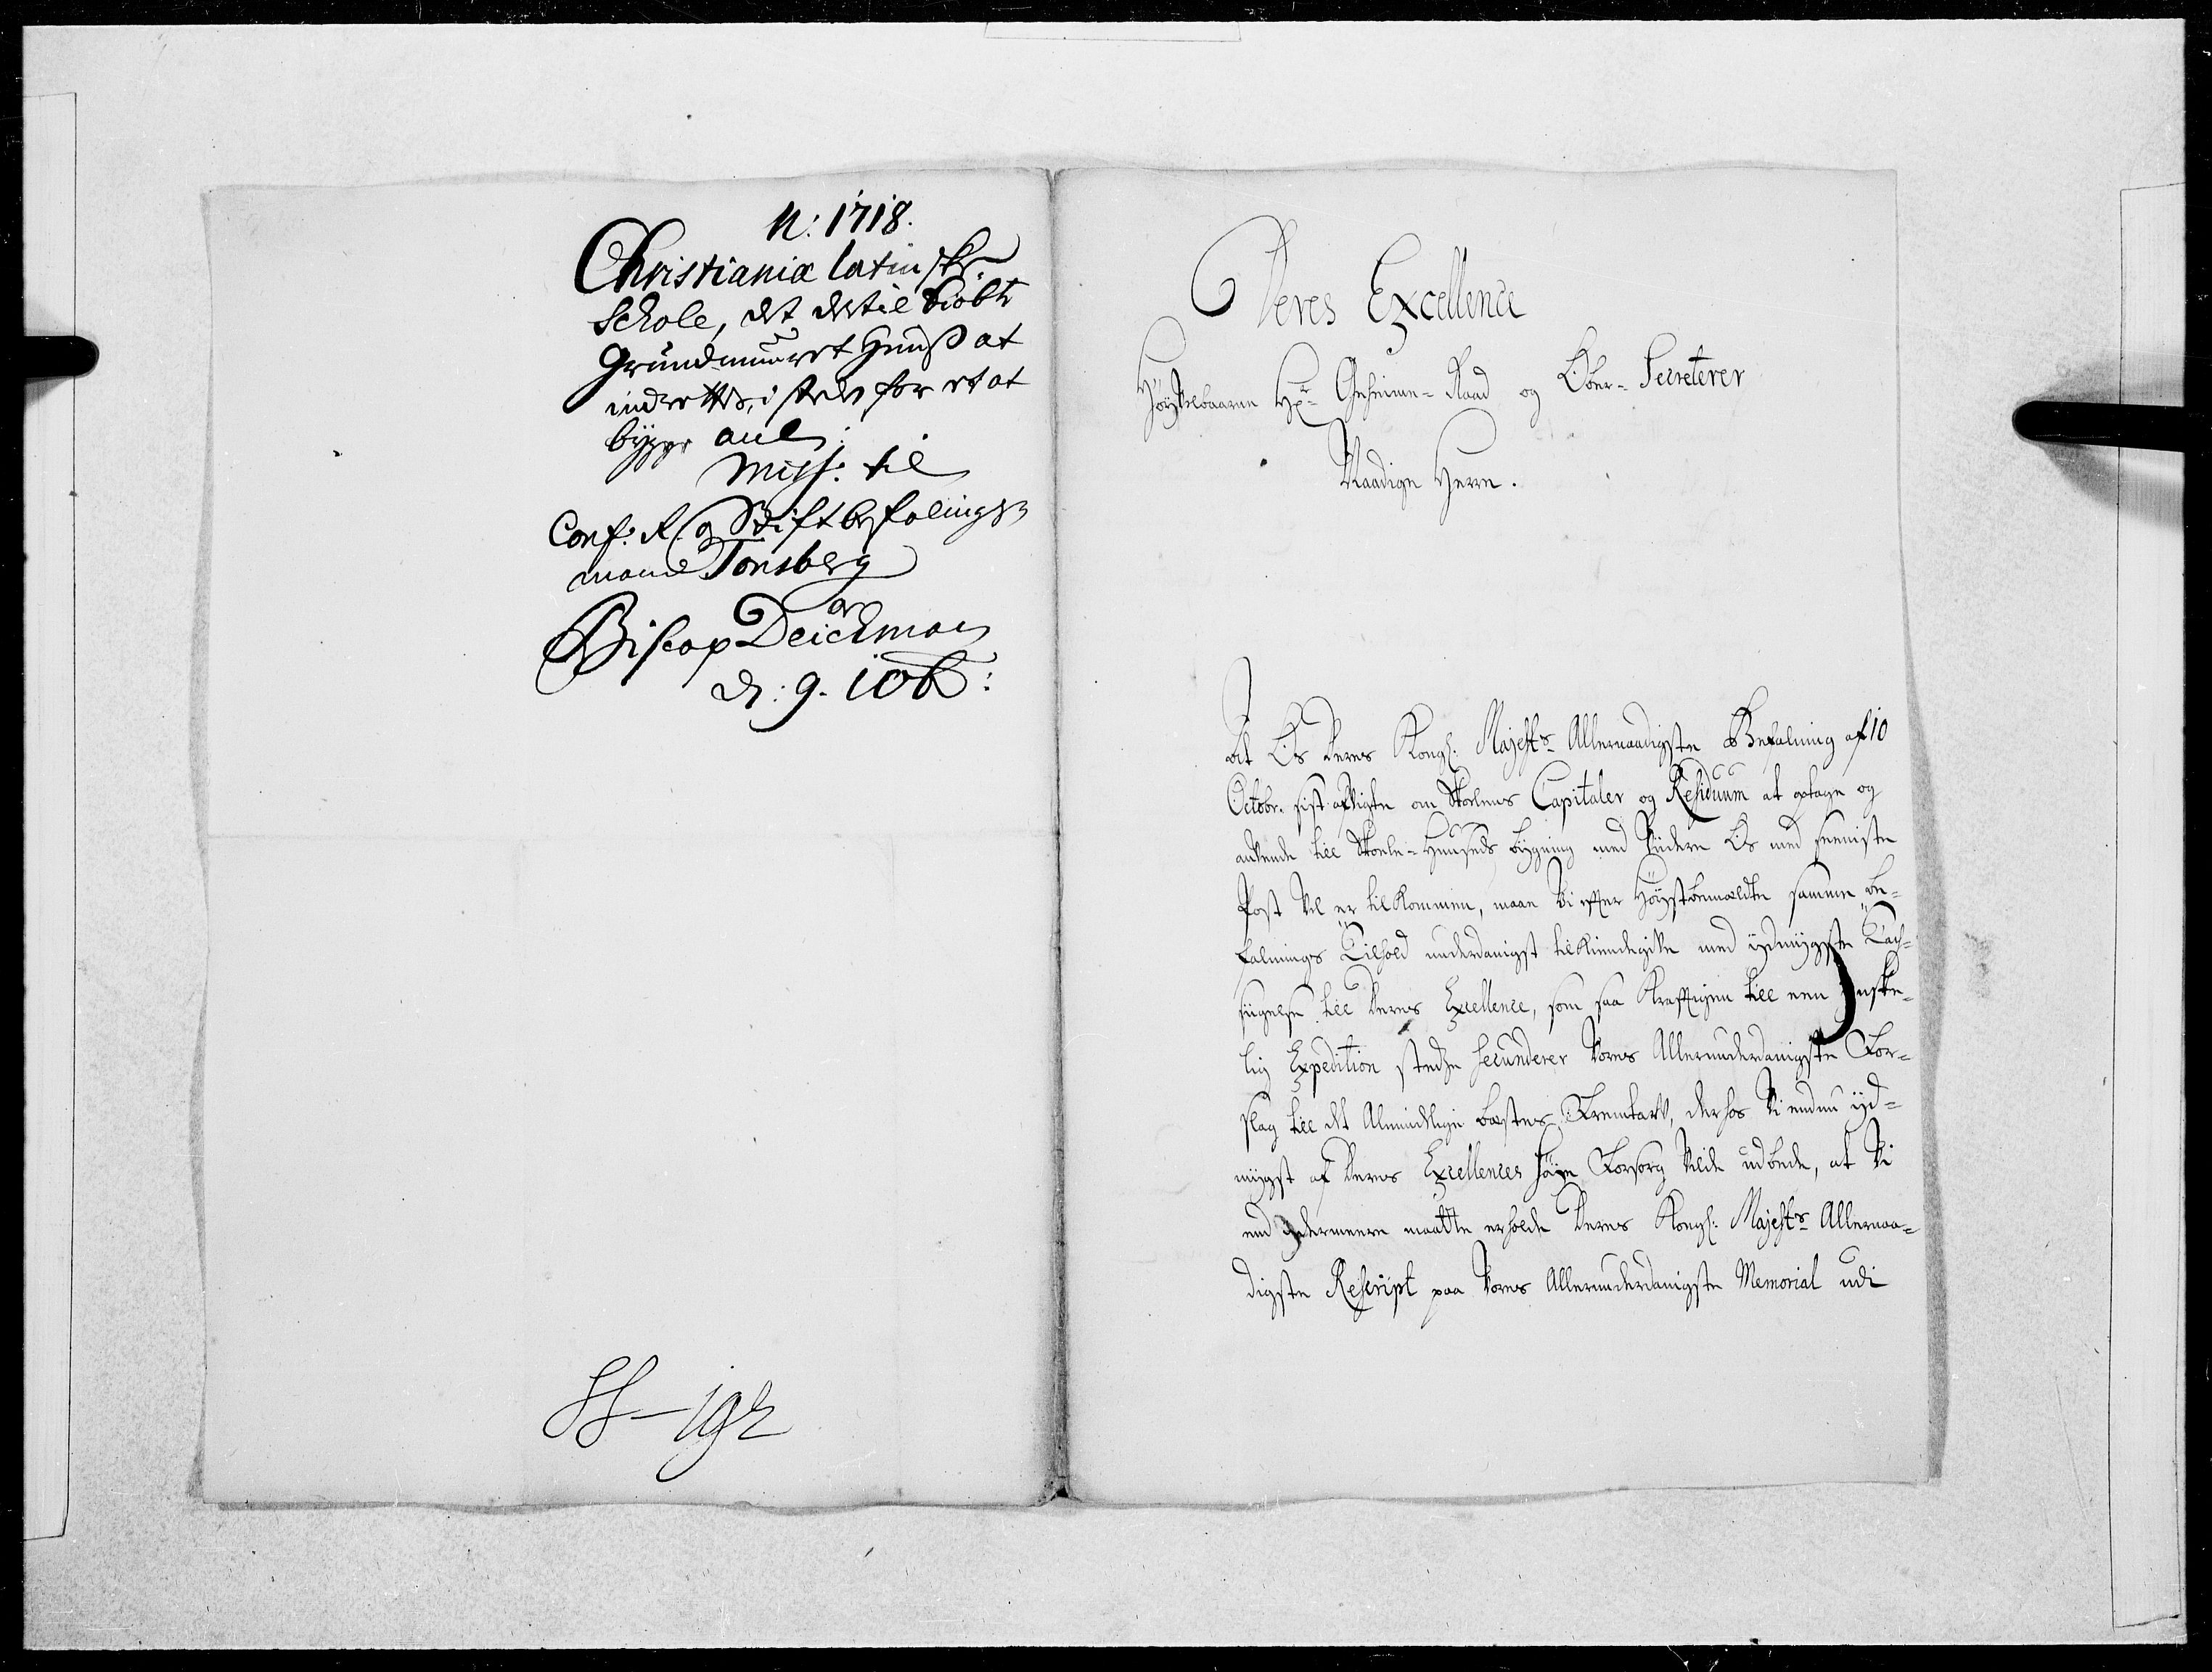 N: 1718.
Christianiæ latinske
Schole, det dertil kiøbte
Grundmuuret Huuß at
indrettes, i stæden for et at
bygge aul:
Miss: til
Conf: R og Stiftbefalings
mand Tonsberg
og
Biscop Deichman
d: 9. 10b:
SS - 192
Deres Excellence
Høyvelbaarne Hr Geheime-Raad og Ober-Secreterer
Naadige Herre.
At Os Deres Kongl: Majests Allernaadigste Befalning af 10
Octobr. sist afvigte om Skolens Capitaler og Residuum at optage og
anvende till Skole-Huusets bygning med videre Os med seeniste
Post vel er tilkommen, maae Vi efter Høystbemældte samme be-
falnings Tilhold underdanigst tilkiendegive med ydmygste Tach-
sigelse till Deres Excellence, som saa kraftigen till een ynske-
lig Expedition stedze secunderer vores Allerunderdanigste For-
slag till det Almindelige bæstes Fremtarv, derhos Vi endnu yd-
mygst af Deres Excellences høye Forsorg ville udbede, at Vi
end ydermeere maatte erholde Deres Kongl: Majests Allernaa-
digste Rescript paa vores Allerunderdanigste Memorial udi